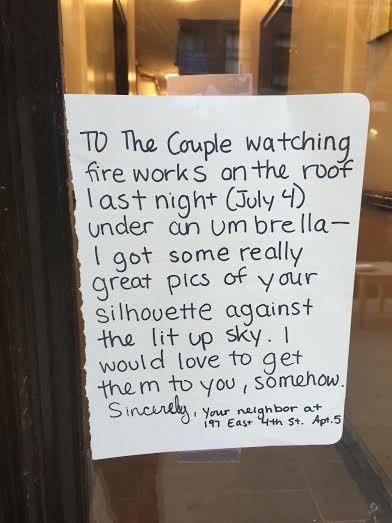 TO The Couple watching
fire works on the roof
last night (July 4)
under an umbrella—
I got some really
great pics of your
silhouette against
the lit up sky. I
would love to get
them to you, somehow.
Sincerely, your neighbor at
197 East 4th St. Apt.5